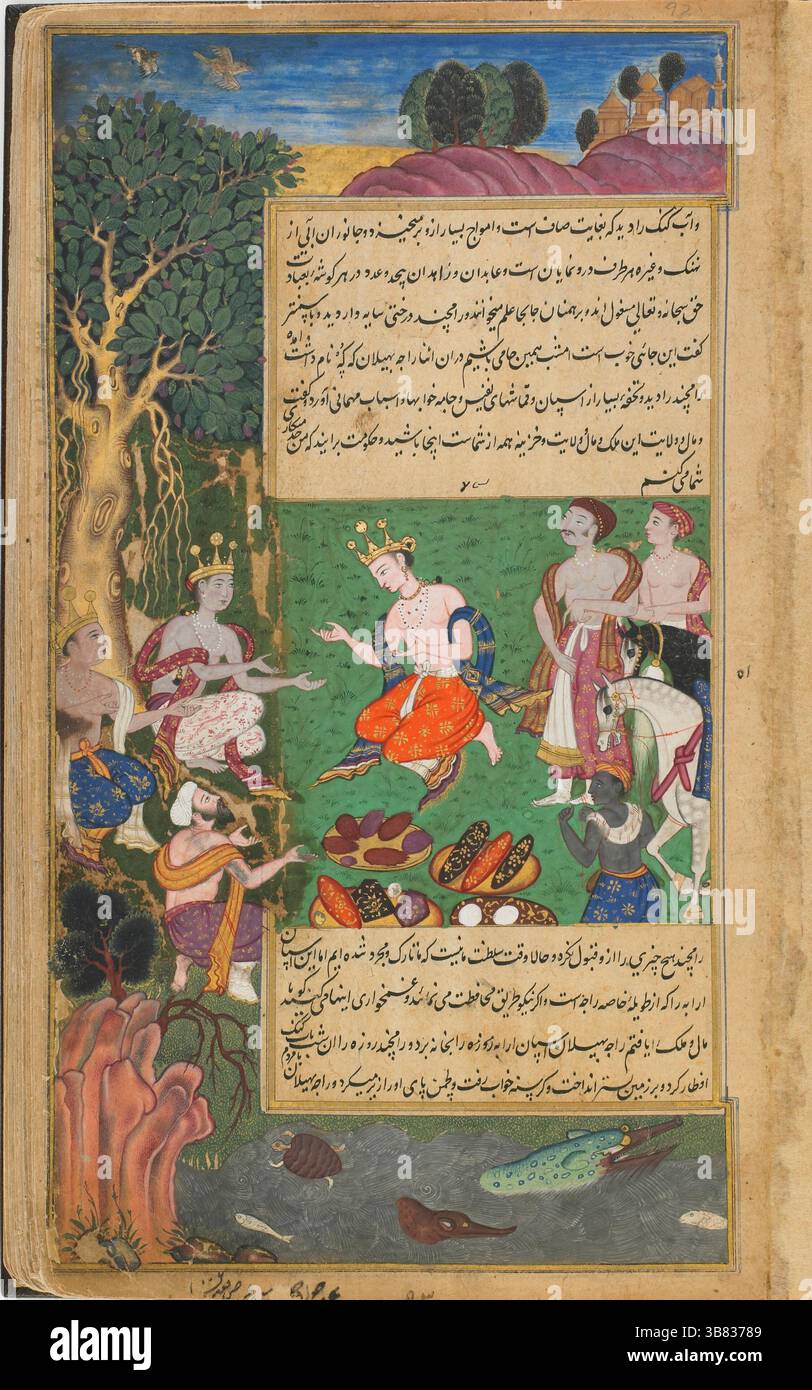 و آب گنگ را دید که بغایت صاف است و امواج بسیار ازو بر میخیزد و جانوران آبی از
نهنگ و غیره هر طرف درو نمایان است و عابدان و زاهدان بیحد و عدد در هر گوشه بعبادت
حق سبحانه و تعالی مشغول اند و برهمنان جابجا علم میخوانند و رامچند درختی سایه وار دید و با سمنتر
گفت این جائی خوب است امشب همین جا می باشیم دران اثنا راجه بهیلان که گه نام داشت آمده
رامچند را دید و تحفه بسیار از اسپان و قماشهای نفیس و جامه خوابها و اسباب مهمانی آورد و گفت
و مال و ولایت این ملک و مال و ولایت و خزینه همه از شماست اینجا باشید و حکومت برانید که من خدمتکاری
شما می کنم
رامچند هیچ چیزی را ازو قبول نکرد و حالا وقت سلطنت ما نیست که ما تارک و مجرد شده ایم اما این اسپان
ارابه را که از طویله خاصه راجه است و اگر نیکو طریق محافظت می نمائید و غمخواری اینها می کنید گویا
مال و ملک را یافتم راجه بهیلان اسپان ارابه را بخانه برد و رامچند روزه را آن شب بآب گنگ
افطار کرد و بر زمین بستر انداخت و گرسنه خواب رفت و لچمن پای او را زیر میکرد و راجه بهیلان
۵۱
92
alamy
Image ID: 2B83789
www.alamy.com